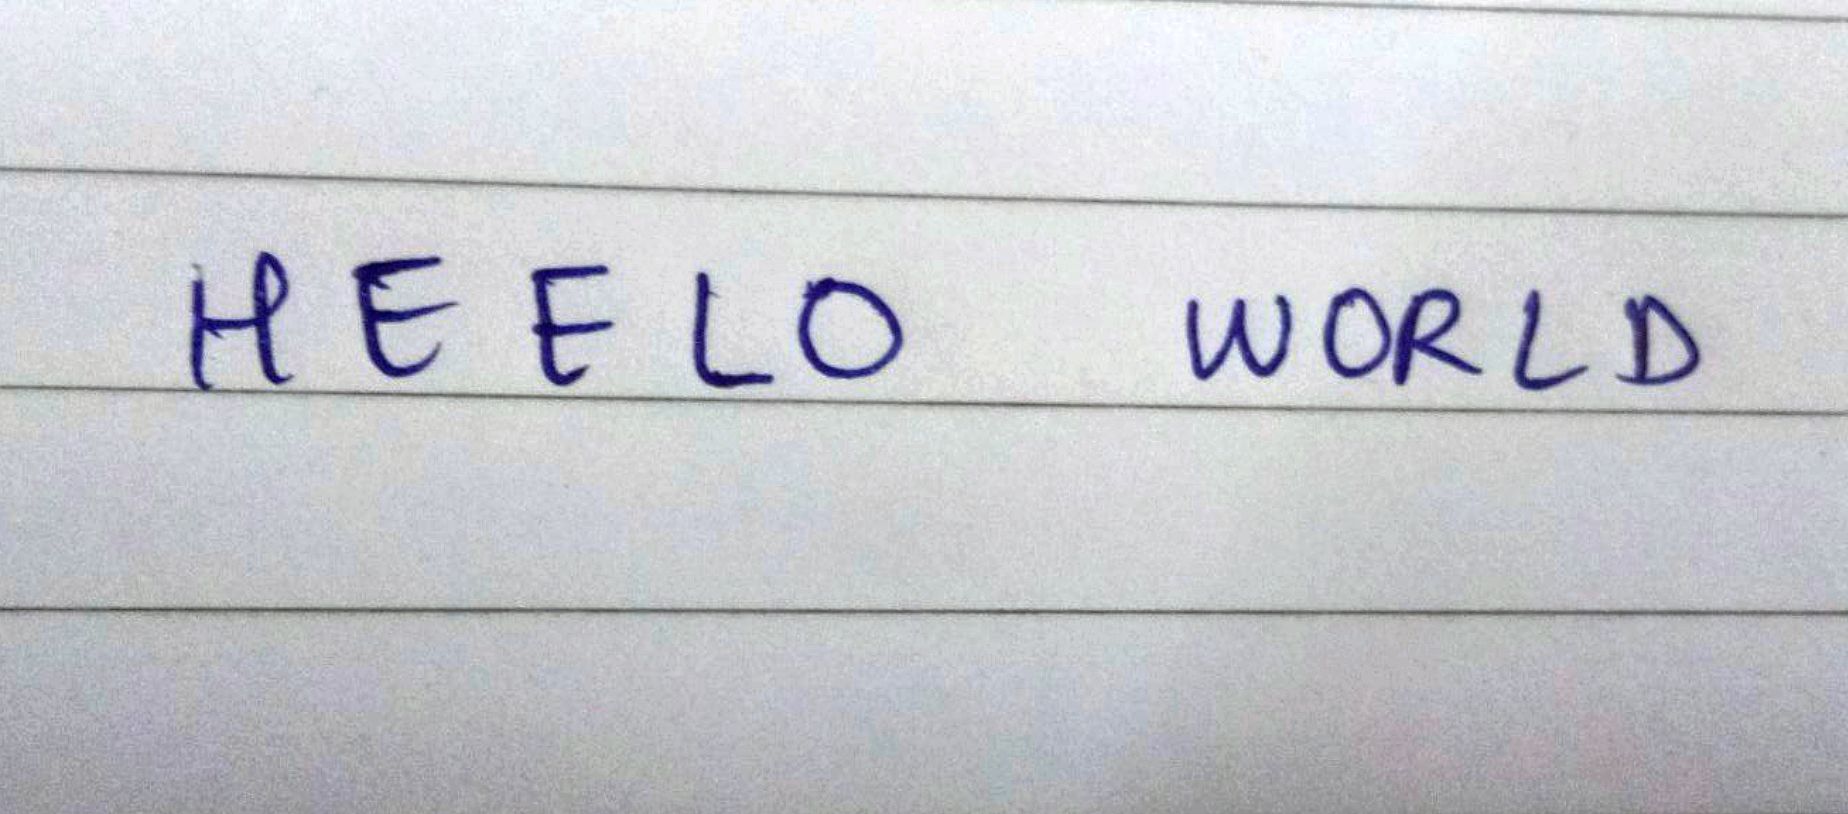 HEELO WORLD